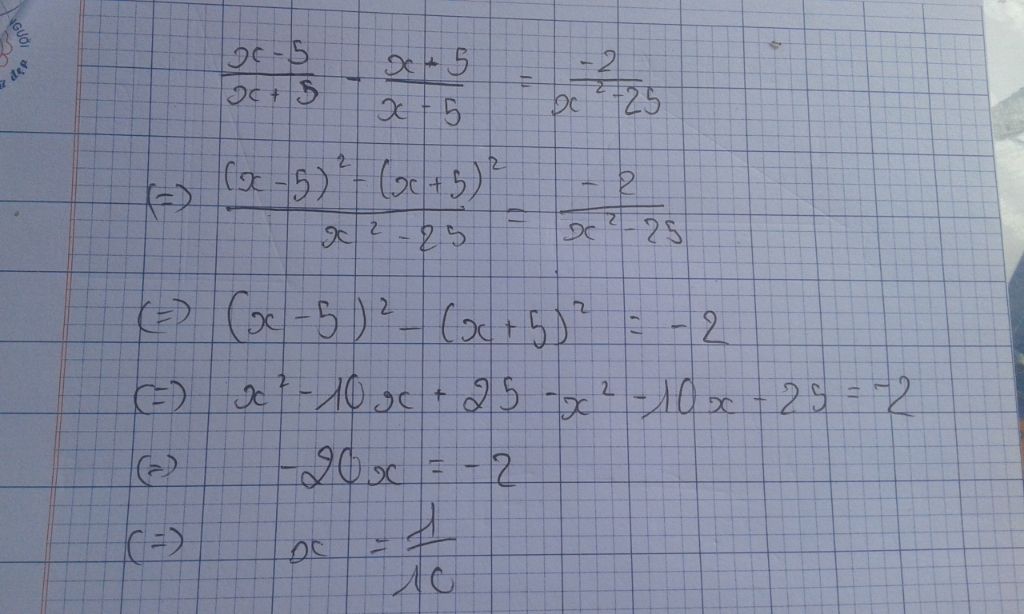 NGƯỜI
đẹp
(x - 5)/(x + 5) - (x + 5)/(x - 5) = -2/(x² - 25)
(=) ((x - 5)² - (x + 5)²)/(x² - 25) = -2/(x² - 25)
(=) (x - 5)² - (x + 5)² = -2
(=) x² - 10x + 25 - x² - 10x - 25 = -2
(=) -20x = -2
(=) x = 1/10